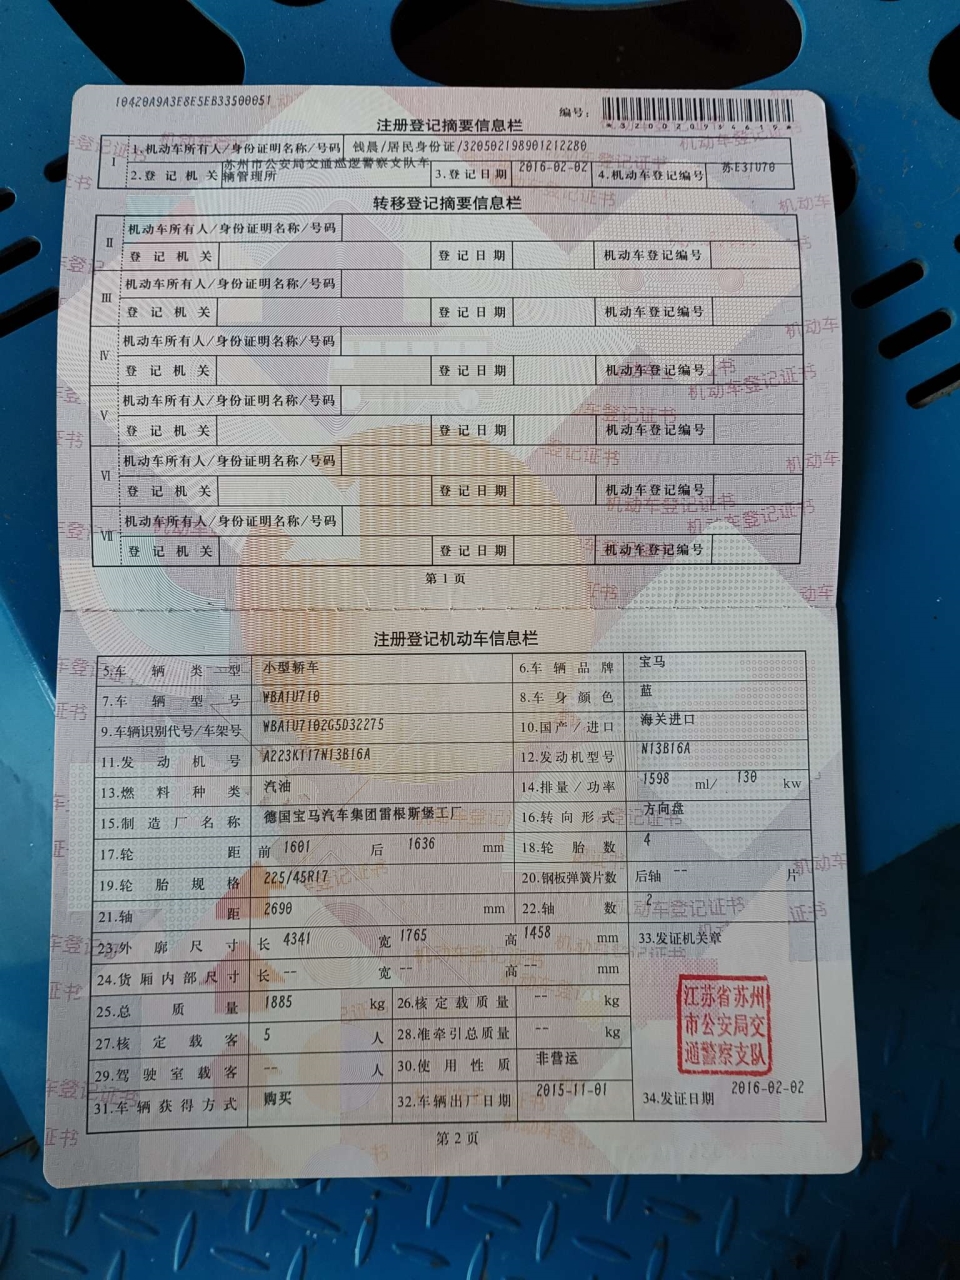 10420A9A3E8E5EB33500051
编号：
*320020954619*
注册登记摘要信息栏
I 1.机动车所有人/身份证明名称/号码 钱晨/居民身份证/320502198901212280
2.登记机关 苏州市公安局交通巡逻警察支队车辆管理所 3.登记日期 2016-02-02 4.机动车登记编号 苏E31U70
转移登记摘要信息栏
II 机动车所有人/身份证明名称/号码
登记机关 登记日期 机动车登记编号
III 机动车所有人/身份证明名称/号码
登记机关 登记日期 机动车登记编号
IV 机动车所有人/身份证明名称/号码
登记机关 登记日期 机动车登记编号
V 机动车所有人/身份证明名称/号码
登记机关 登记日期 机动车登记编号
VI 机动车所有人/身份证明名称/号码
登记机关 登记日期 机动车登记编号
VII 机动车所有人/身份证明名称/号码
登记机关 登记日期 机动车登记编号
第1页
注册登记机动车信息栏
5.车辆类型 小型轿车 6.车辆品牌 宝马
7.车辆型号 WBA1U710 8.车身颜色 蓝
9.车辆识别代号/车架号 WBA1U7102G5D32275 10.国产/进口 海关进口
11.发动机号 A223K117N13B16A 12.发动机型号 N13B16A
13.燃料种类 汽油 14.排量/功率 1598 ml/ 130 kw
15.制造厂名称 德国宝马汽车集团雷根斯堡工厂 16.转向形式 方向盘
17.轮距 前 1601 后 1636 mm 18.轮胎数 4
19.轮胎规格 225/45R17 20.钢板弹簧片数 后轴 -- 片
21.轴距 2690 mm 22.轴数 2
23.外廓尺寸 长 4341 宽 1765 高 1458 mm 33.发证机关章
24.货厢内部尺寸 长 -- 宽 -- 高 -- mm
25.总质量 1885 kg 26.核定载质量 -- kg
江苏省苏州
市公安局交
通警察支队
27.核定载客 5 人 28.准牵引总质量 -- kg
29.驾驶室载客 -- 人 30.使用性质 非营运
31.车辆获得方式 购买 32.车辆出厂日期 2015-11-01 34.发证日期 2016-02-02
第2页